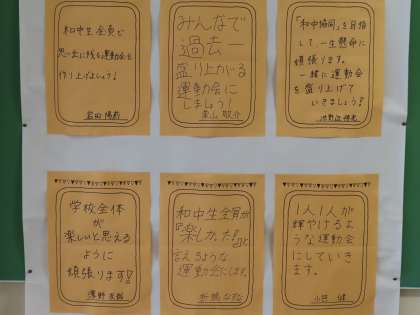 和中生全員で
思い出に残る運動会を
作り上げましょう！
みんなで
過去一
盛り上がる
運動会に
しましょう！
「和中協同」を目指
して、一生懸命に
頑張ります。
一緒に運動会
を盛り上げて
いきましょう？
学校全体
が
楽しいと思える
ように
頑張ります!!
和中生全員が
『楽しかった!!』と
言えるような
運動会にします。
1人1人が
輝やけるよ
うな運動会
にしていき
ます。